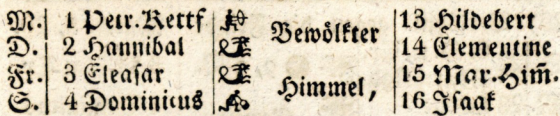 M. 1 Petr. Kettf Bewölkter 13 Hildebert
D. 2 Hannibal 14 Clementine
Fr. 3 Eleasar Himmel, 15 Mar. Him̄.
S. 4 Dominicus 16 Isaak